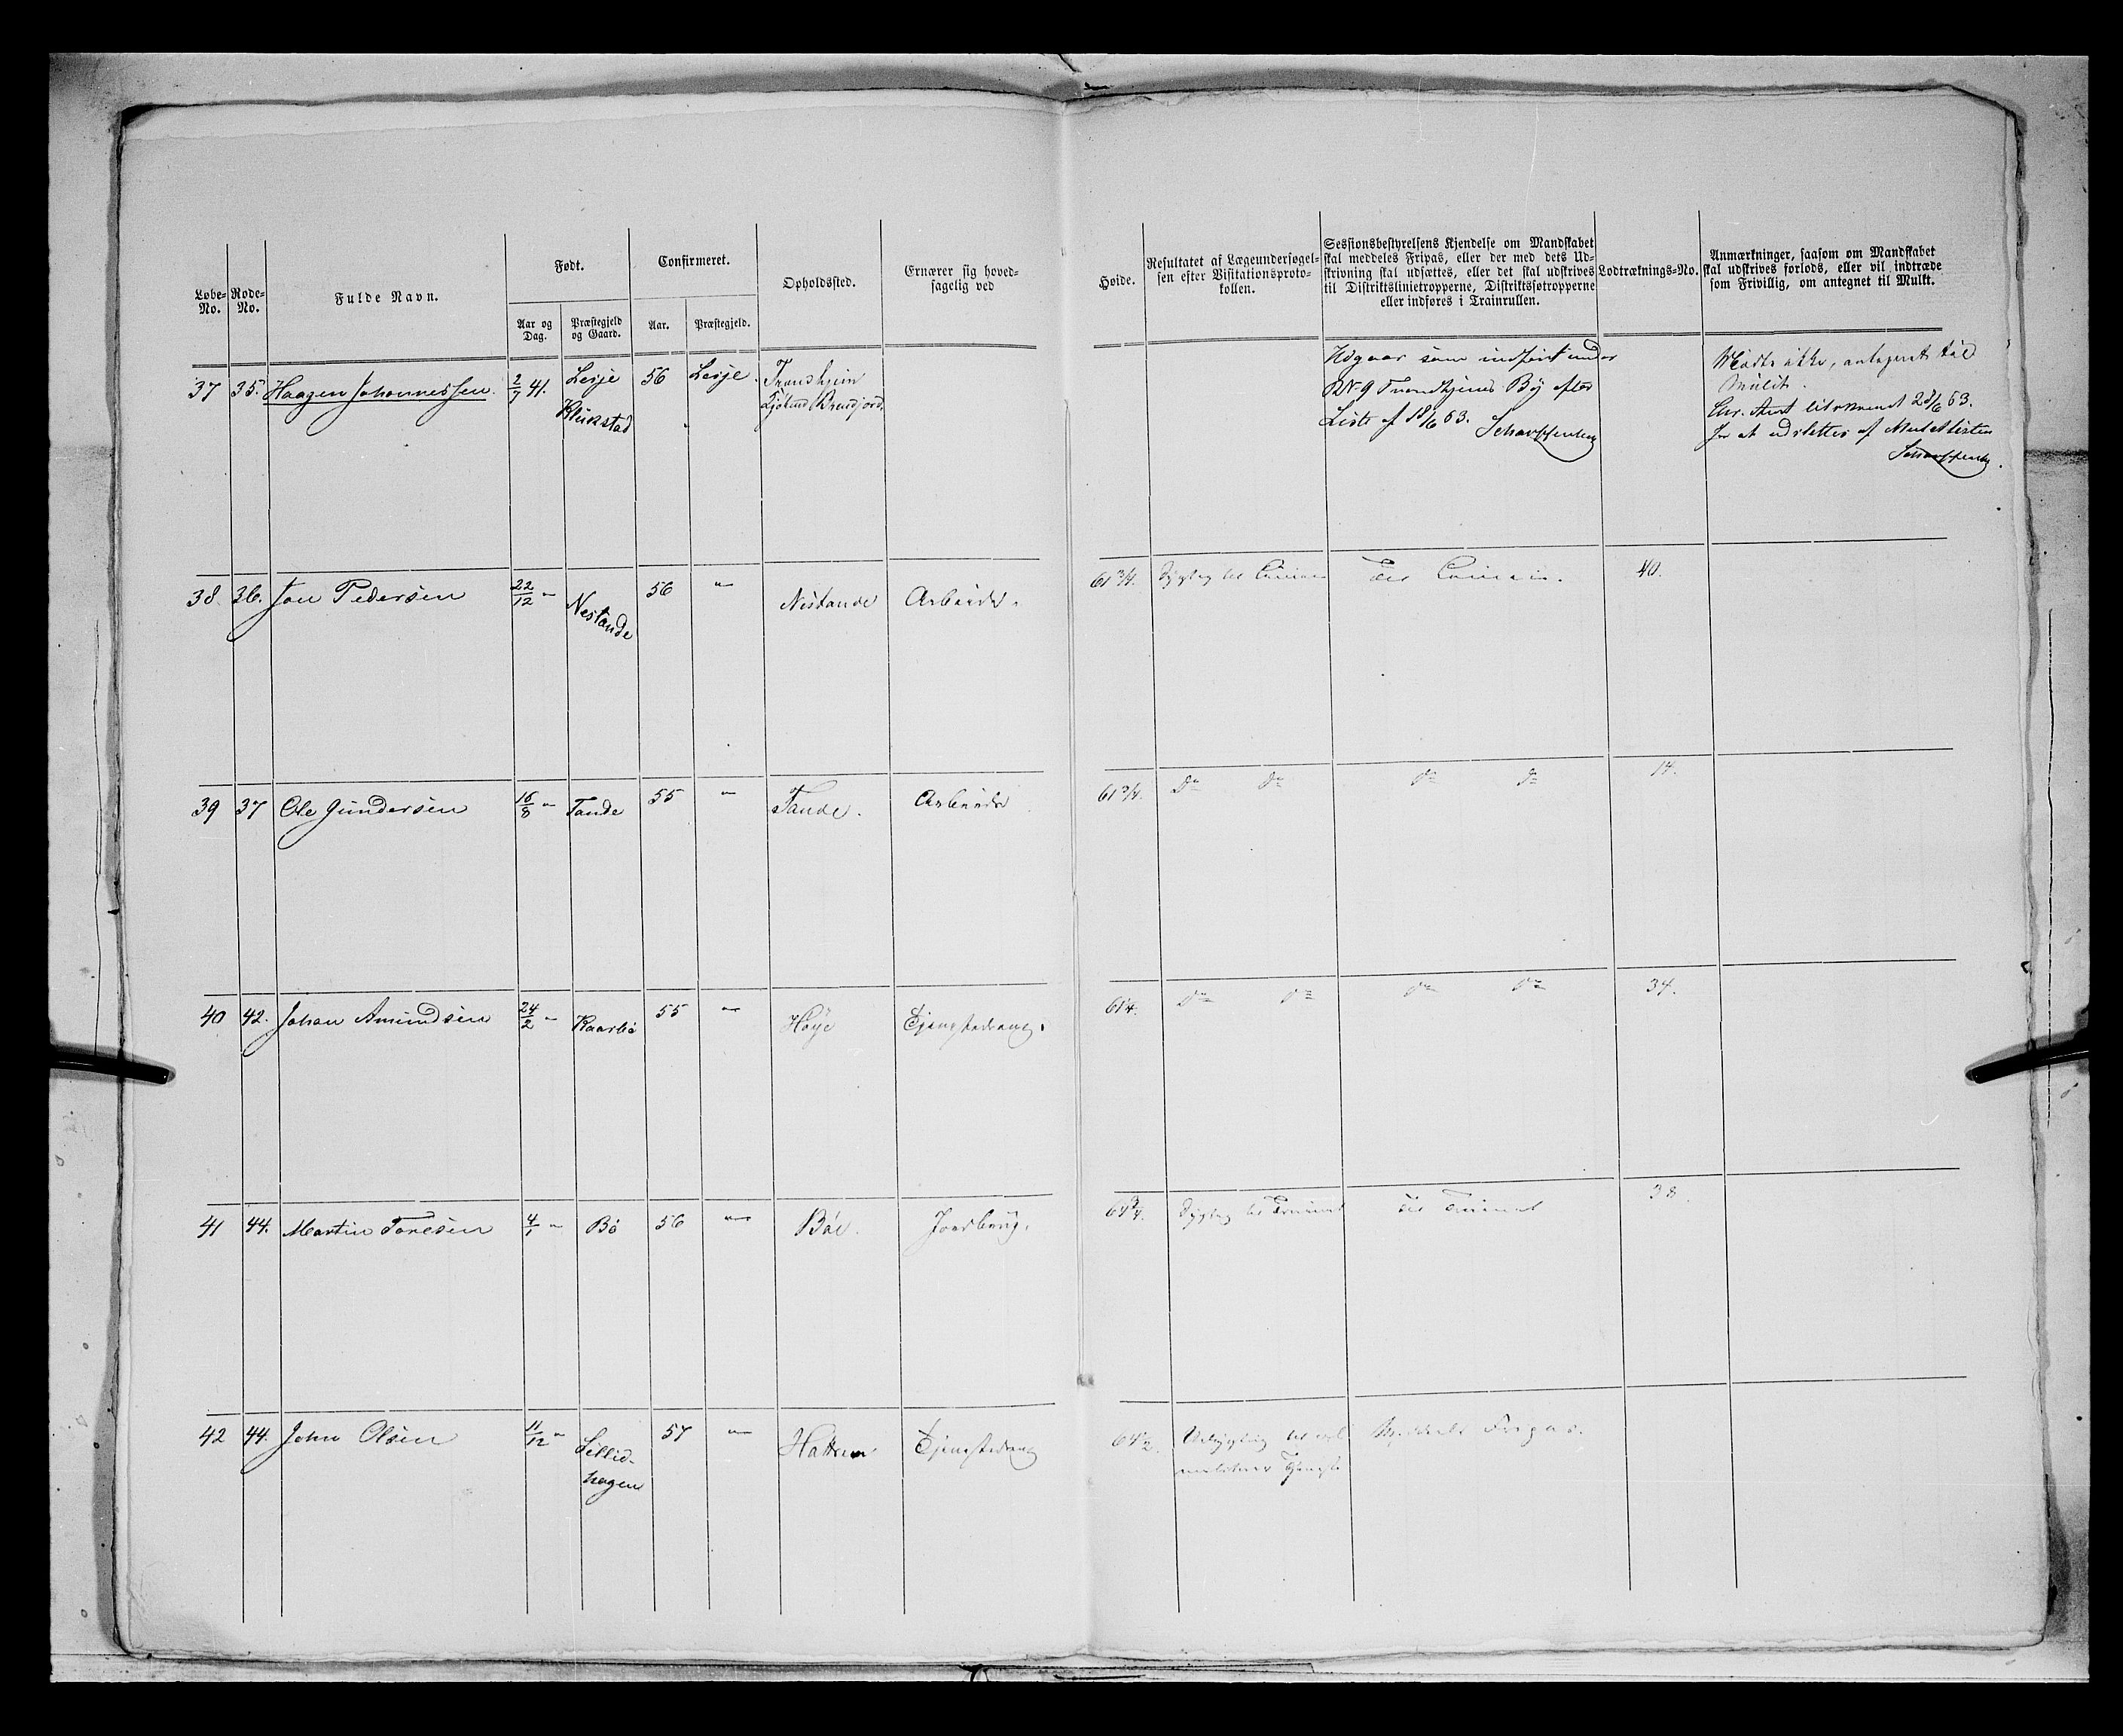 Løbe-No.
Rode-No.
Fulde Navn.
Født.
Aar og Dag.
Præstegjeld og Gaard.
Confirmeret.
Aar.
Præstegjeld.
Opholdssted.
Ernærer sig hoved-
sagelig ved
Høide.
Resultatet af Lægeundersøgel-
sen efter Visitationsproto-
kollen.
Sessionsbestyrelsens Kjendelse om Mandskabet
skal meddeles Fripas, eller der med dets Ud-
skrivning skal udsættes, eller det skal udskrives
til Distriktslinietropperne, Distriktsøtropperne
eller indføres i Trainrullen.
Lodtræknings-No.
Anmærkninger, saasom om Mandskabet
skal udskrives forlods, eller vil indtræde
som Frivillig, om antegnet til Mulkt.
37 35. Haagen Johannessen. 2/7 41. Lesje 56 Lesje. Trondhjem
Kleikstad
Udgaar som indført under
RN 9 Trondhjems By efter
Liste af 18/6 63.
Mødte ikke, antegnet til
Mulct.
28/6 63.
for at udslettes af Mulctlisten
38. 36. Jon Pedersen 22/12 " Nestande 56 " Nestande Arbeide. 61 3/4. Dygtig til Trainen Til Trainen. 40.
39 37 Ole Gundersen 16/8 " Tande 55 " Tande. Arbeide 61 3/4. Do Do Do Do 14.
40 42. Johan Amundsen 24/2 " Kaarbø 55 " Høye Tjenestedreng. 61 1/4. Do Do Do Do 34.
41 44. Martin Toresen 4/1 " Bö 56 " Böe. Jordbrug. 64 3/4. Dygtig til Trainen Til Trainen 38.
42 44. John Olsen 11/12 " Lillie- 57 " Hattrem Tjenestedreng 64 1/2. Udygtig til al Meddeles Fripas.
hagen militær Tjeneste